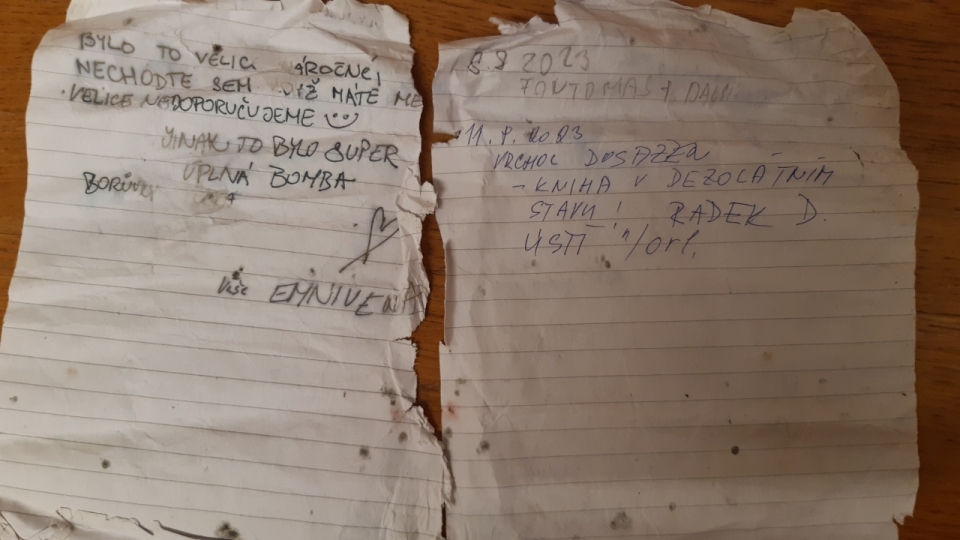 BYLO TO VELICE
NECHOĎTE SEM MÁTE
VELICE NEDOPORUČUJEME
JINAK TO BYLO SUPER
ÚPLNÁ BOMBA
Vaše EMNIVENA
8.8 2023
11. 8. 2023
VRCHOL DOSAŽEN
- KNIHA V DEZOLÁTNÍM
STAVU! RADEK D.
ÚSTÍ n/Orl.